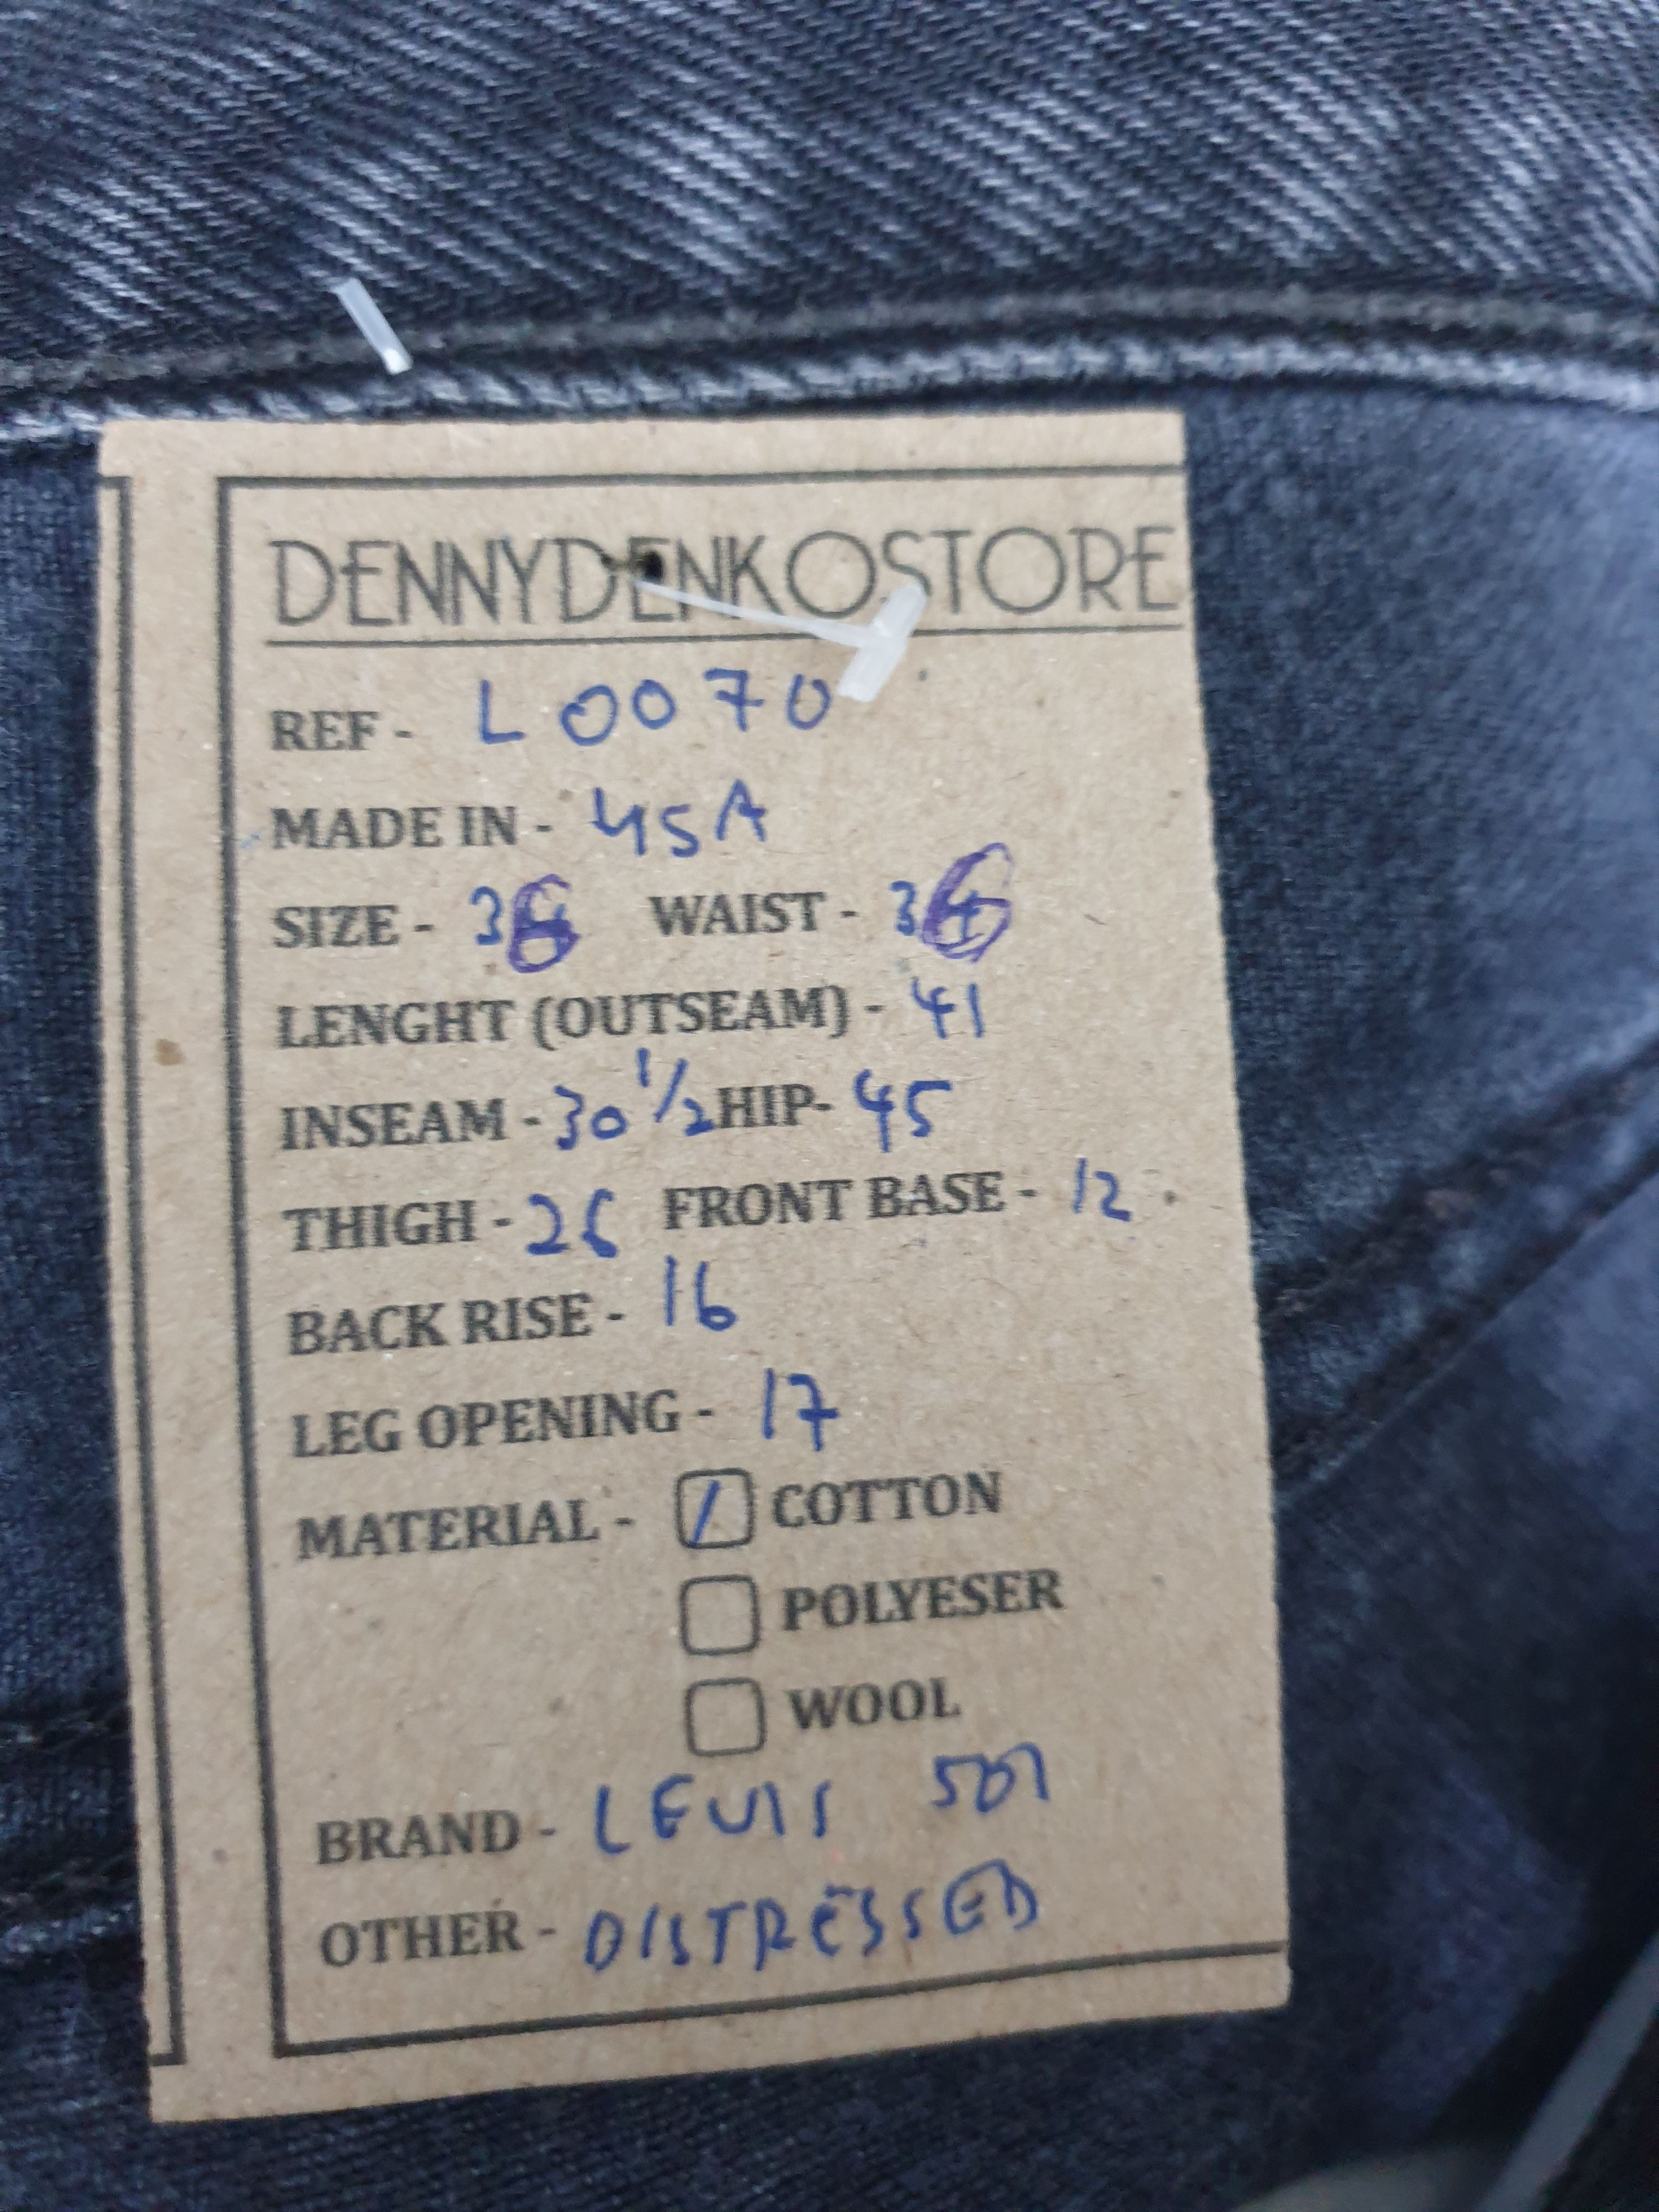 DENNYDENKOSTORE
REF - L0070
MADE IN - USA
SIZE - 36 WAIST - 36
LENGHT (OUTSEAM) - 41
INSEAM - 30 1/2 HIP- 45
THIGH - 26 FRONT BASE - 12
BACK RISE - 16
LEG OPENING - 17
MATERIAL - COTTON
POLYESER
WOOL
BRAND - LEVIS 501
OTHER - DISTRESSED